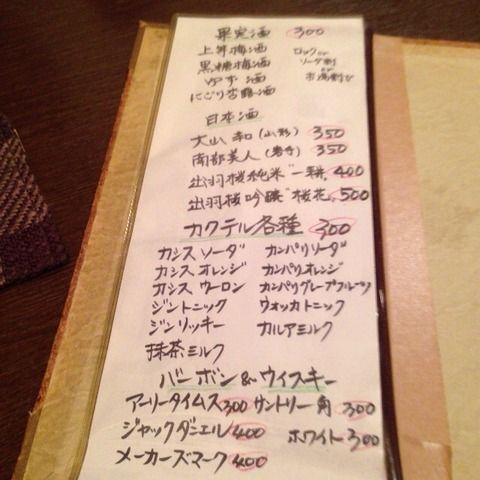 果実酒 300
上等梅酒 ロックor
黒糖梅酒 ソーダ割
ゆず酒 or お湯割り
にごり杏露酒
日本酒
大山 和(山形) 350
南部美人(岩手) 350
出羽桜純米"一耕" 400
出羽桜吟醸"桜花" 500
カクテル各種 300
カシスソーダ カンパリソーダ
カシスオレンジ カンパリオレンジ
カシスウーロン カンパリグレープフルーツ
ジントニック ウォッカトニック
ジンリッキー カルアミルク
抹茶ミルク
バーボン&ウイスキー
アーリータイムス300 サントリー角 300
ジャックダニエル 400 ホワイト 300
メーカーズマーク 400